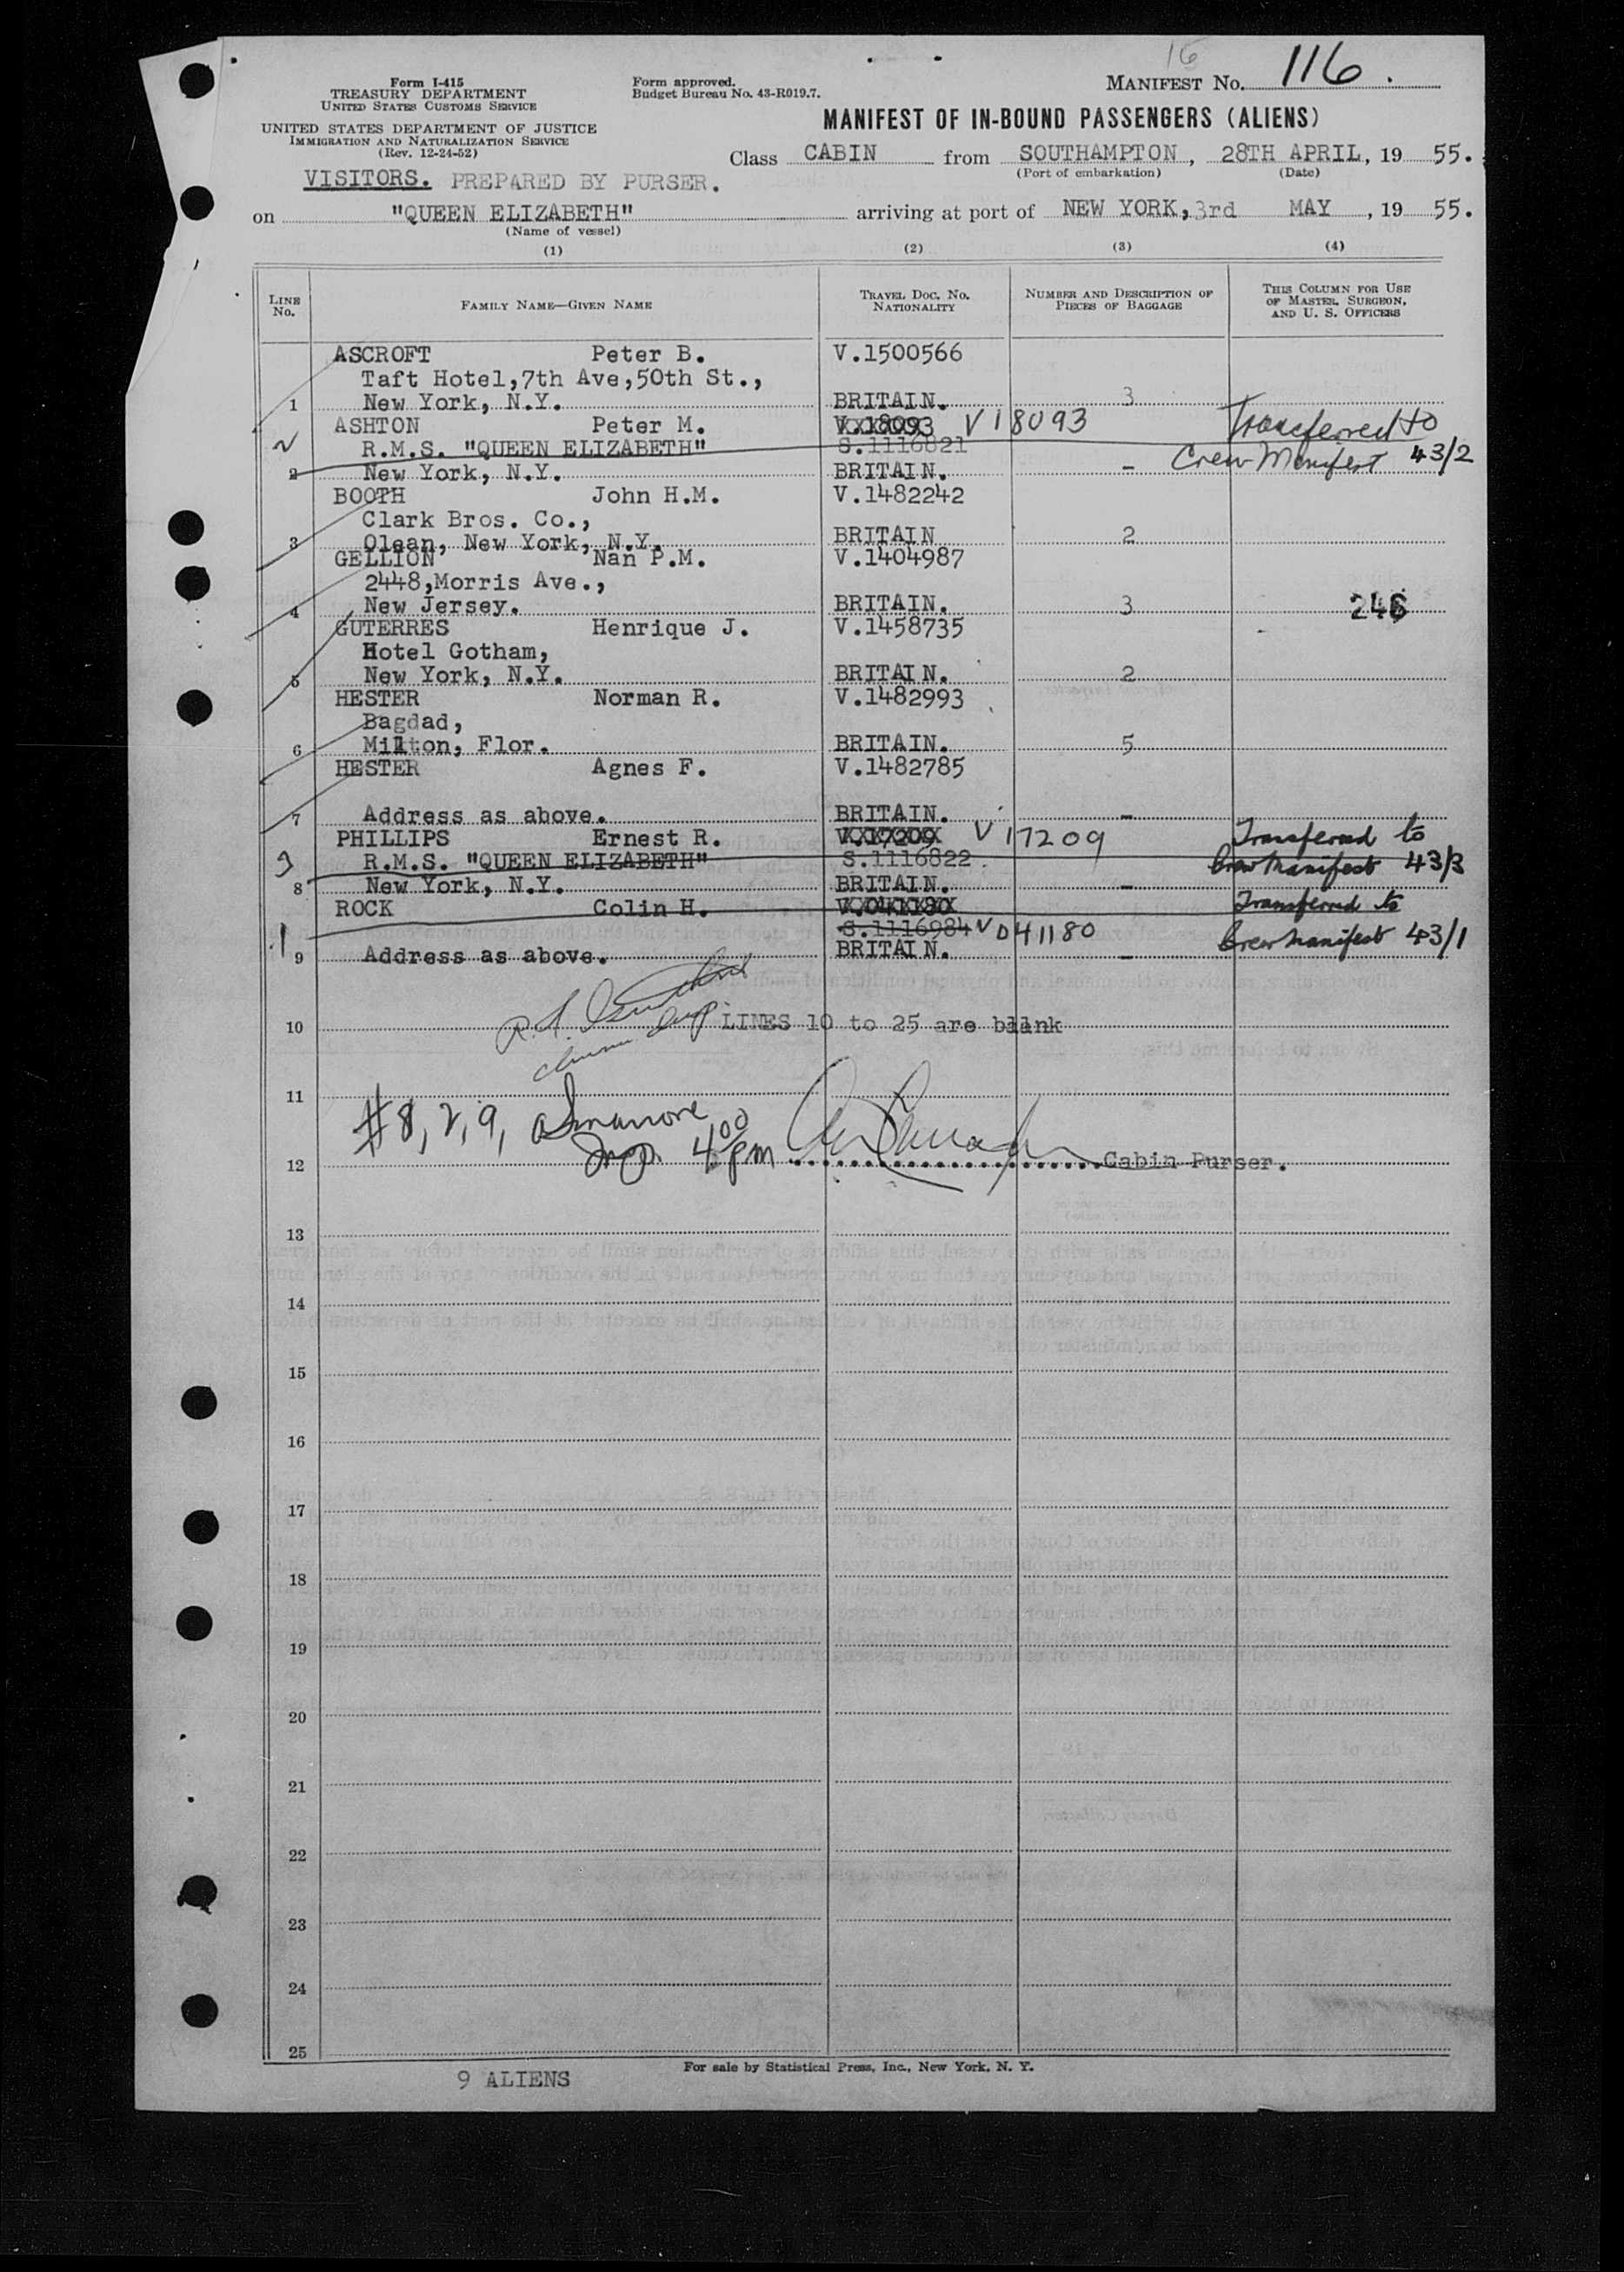 16
Form I-415
TREASURY DEPARTMENT
UNITED STATES CUSTOMS SERVICE
Form approved.
Budget Bureau No. 43-R019.7.
MANIFEST No. 116.
UNITED STATES DEPARTMENT OF JUSTICE
IMMIGRATION AND NATURALIZATION SERVICE
(Rev. 12-24-52)
MANIFEST OF IN-BOUND PASSENGERS (ALIENS)
Class CABIN from SOUTHAMPTON, 28TH APRIL, 19 55.
(Port of embarkation) (Date)
VISITORS. PREPARED BY PURSER.
on "QUEEN ELIZABETH" arriving at port of NEW YORK, 3rd MAY, 19 55.
(Name of vessel)
(1) (2) (3) (4)
LINE No. FAMILY NAME—GIVEN NAME TRAVEL DOC. No. NATIONALITY NUMBER AND DESCRIPTION OF PIECES OF BAGGAGE THIS COLUMN FOR USE OF MASTER, SURGEON, AND U. S. OFFICERS
ASCROFT Peter B. V.1500566
Taft Hotel,7th Ave,50th St.,
1 New York, N.Y. BRITAIN. 3
ASHTON Peter M. V.18093 V18093 Transferred to
2 R.M.S. "QUEEN ELIZABETH" S.1116821 Crew Manifest 43/2
2 New York, N.Y. BRITAIN. -
BOOTH John H.M. V.1482242
Clark Bros. Co.,
3 Olean, New York, N.Y. BRITAIN 2
GELLION Nan P.M. V.1404987
2448,Morris Ave.,
4 New Jersey. BRITAIN. 3 246
GUTERRES Henrique J. V.1458735
Hotel Gotham,
5 New York, N.Y. BRITAIN. 2
HESTER Norman R. V.1482993
Bagdad,
6 Milton, Flor. BRITAIN. 5
HESTER Agnes F. V.1482785
7 Address as above. BRITAIN. -
PHILLIPS Ernest R. V.17209 V17209 Transferred to
3 R.M.S. "QUEEN ELIZABETH" S.1116822. Crew Manifest 43/3
8 New York, N.Y. BRITAIN. -
ROCK Colin H. V.041180 Transferred to
1 S.1116984 V041180 Crew Manifest 43/1
9 Address as above. BRITAIN. -
10 LINES 10 to 25 are blank
11
#8, 2, 9,
Insp. 4:00 pm
12 Cabin Purser.
13
14
15
16
17
18
19
20
21
22
23
24
25
9 ALIENS
For sale by Statistical Press, Inc., New York, N. Y.